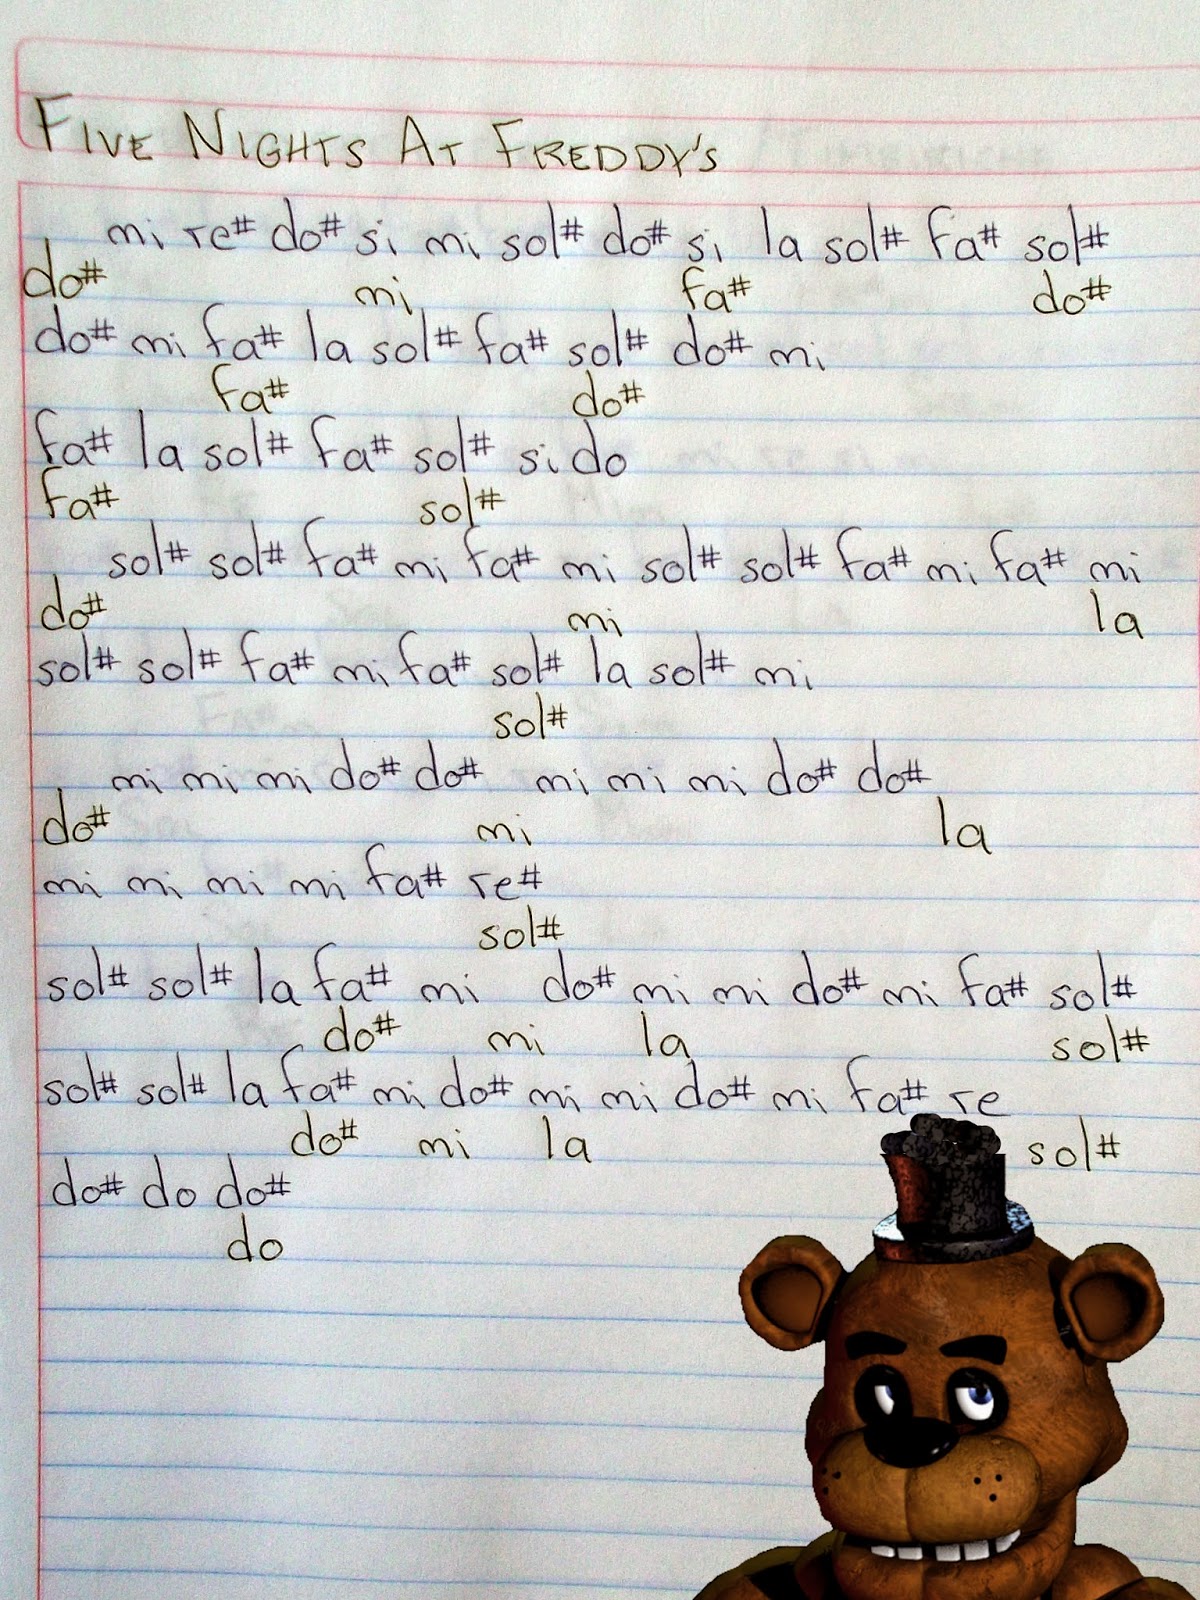 FIVE NIGHTS AT FREDDY'S
mi re# do# si mi sol# do# si la sol# fa# sol#
do# mi fa# do#
do# mi fa# la sol# fa# sol# do# mi
fa# do#
fa# la sol# fa# sol# si do
fa# sol#
sol# sol# fa# mi fa# mi sol# sol# fa# mi fa# mi
do# mi la
sol# sol# fa# mi fa# sol# la sol# mi
sol#
mi mi mi do# do# mi mi mi do# do#
do# mi la
mi mi mi mi fa# re#
sol#
sol# sol# la fa# mi do# mi mi do# mi fa# sol#
do# mi la sol#
sol# sol# la fa# mi do# mi mi do# mi fa# re
do# mi la sol#
do# do do#
do